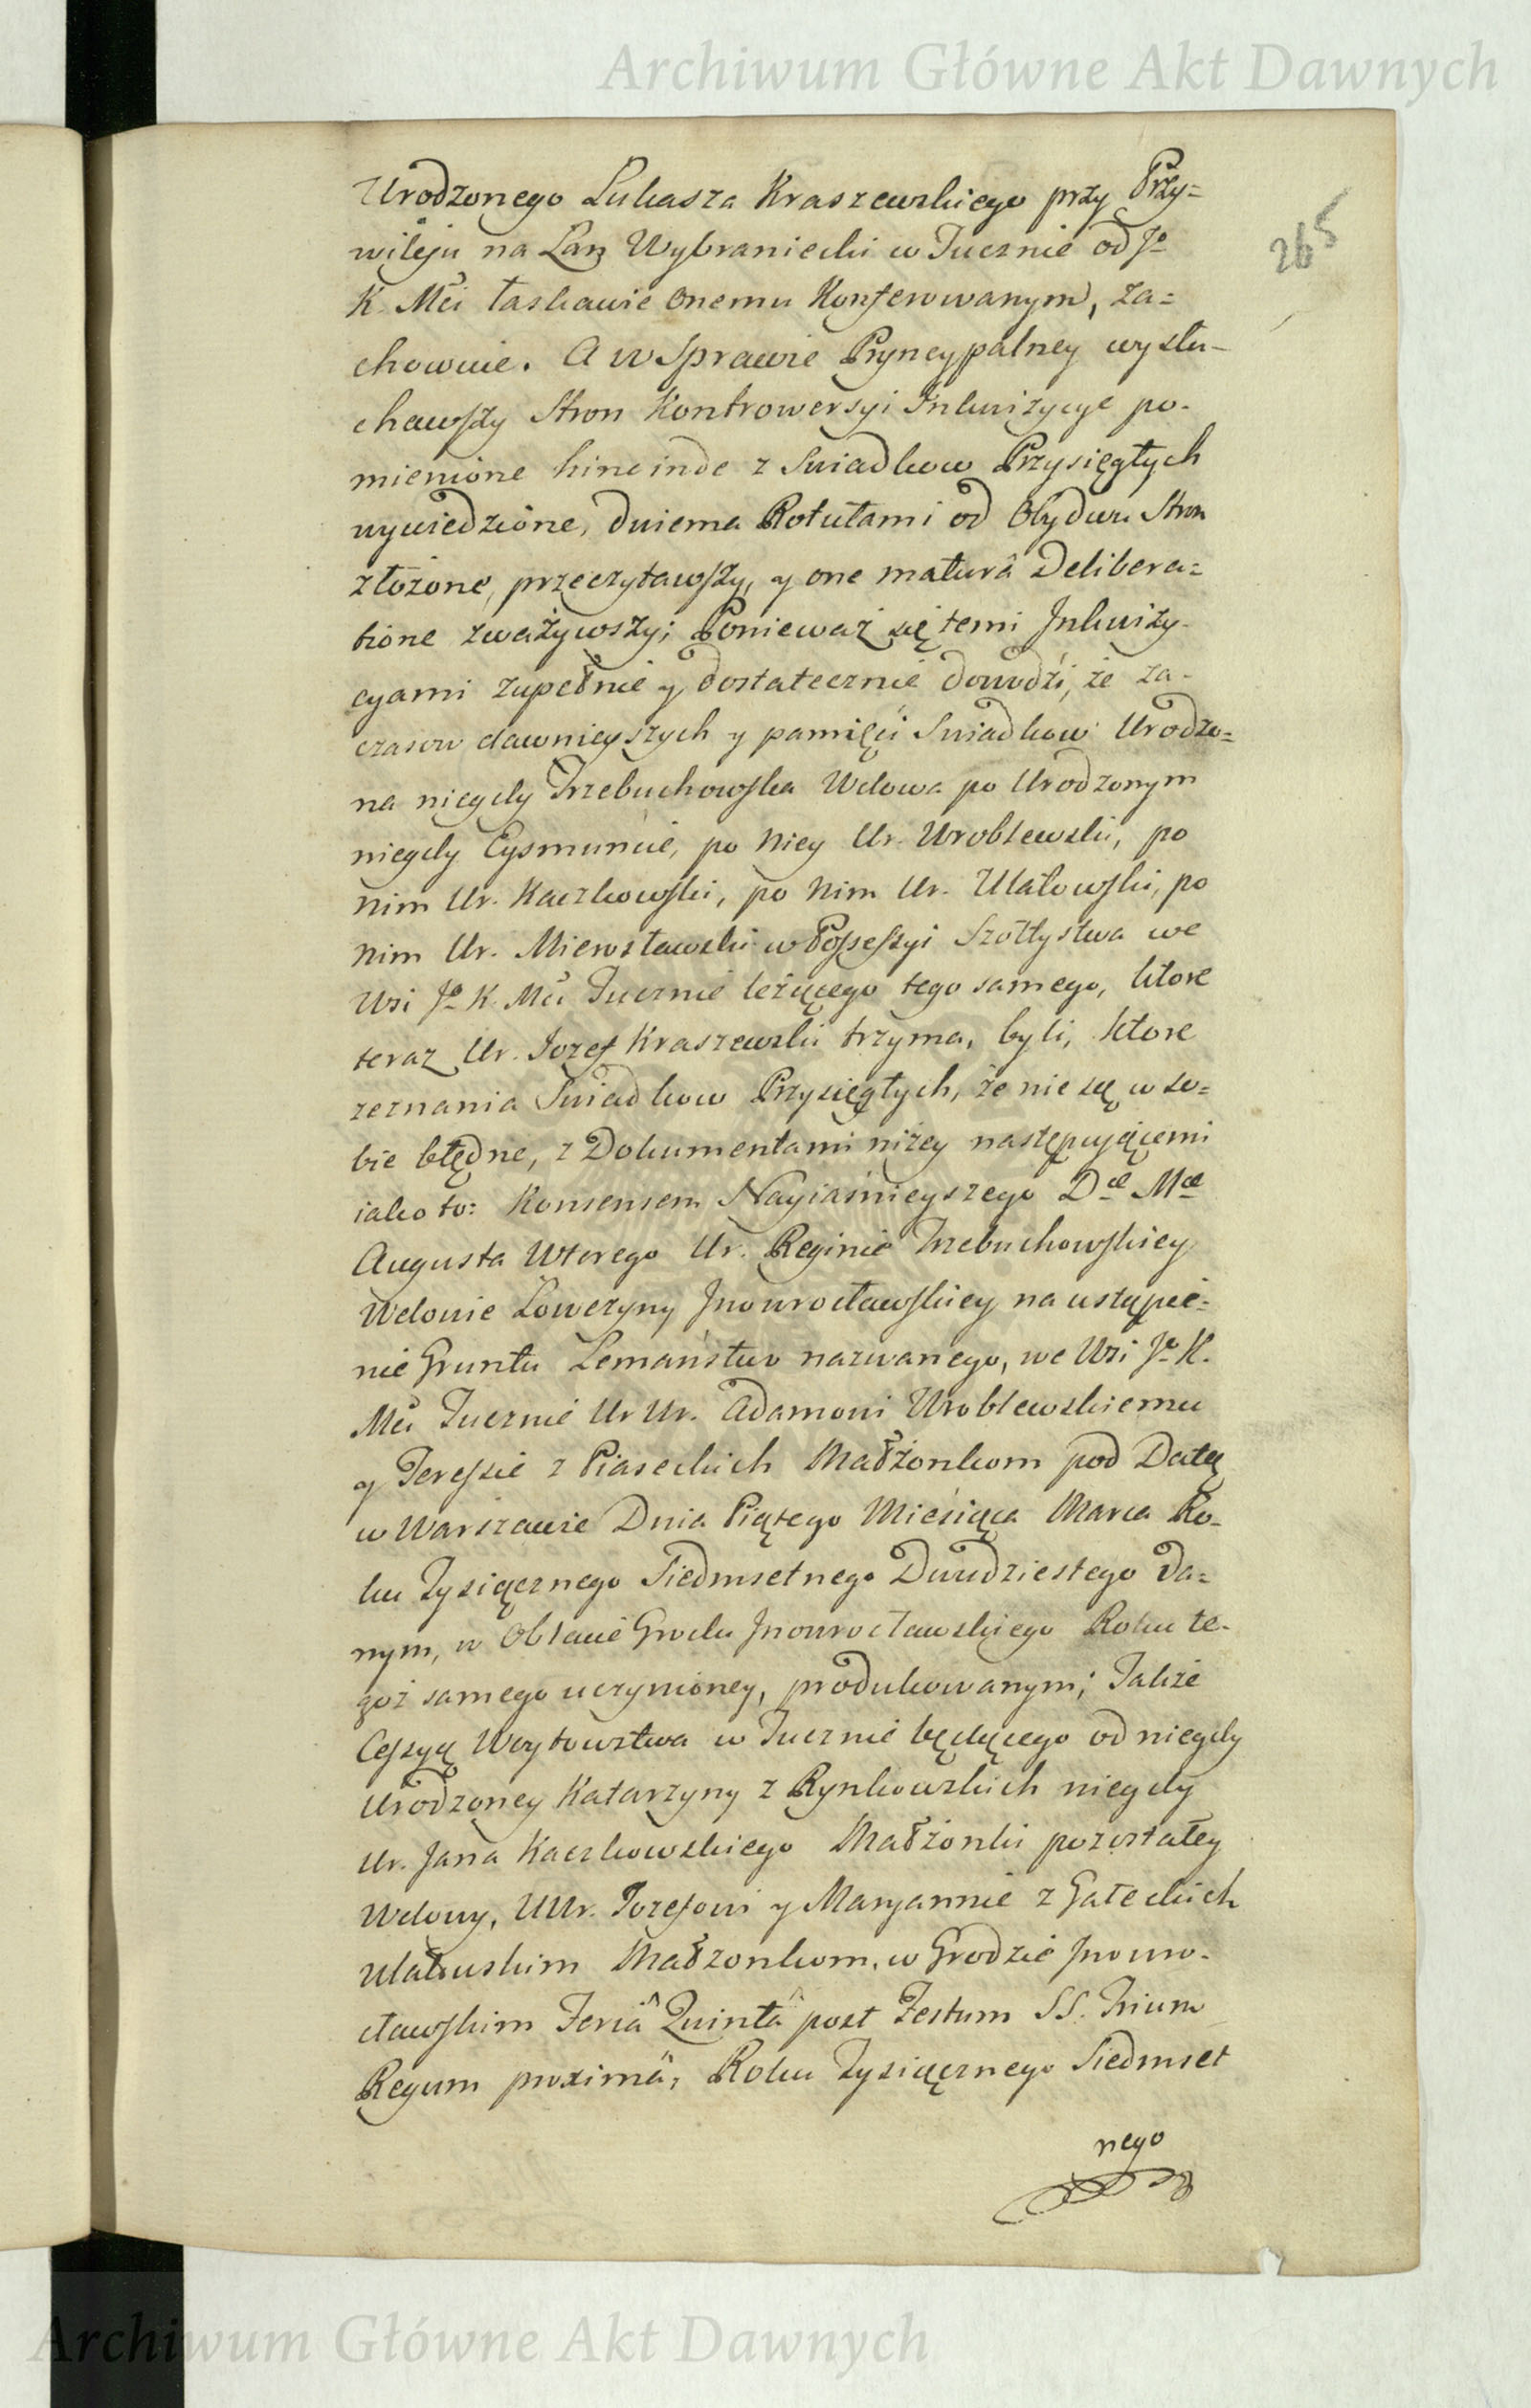 Archiwum Główne Akt Dawnych
265
Urodzonego Lukasza Kraszewskiego przy Przy=
wileju na Łan Wybraniecki w Tucznie od Jo
K. Mci łaskawie onemu Konferowanym, za=
chowuie. A w Sprawie Pryncypalney wysłu-
chawszy Stron Kontrowersyi Inkwizycye po-
mienione hinc inde z Swiadkow Przysięgłych
wywiedzione, dwiema Rotułami od Obydwu Stron
złożone, przeczytawszy, y one maturâ Delibera=
tione zważywszy; Ponieważ się temi Inkwizy-
cyami zupełnie y dostatecznie dowodzi, że za-
czasow dawnieyszych y pamięci Swiadkow Urodzo=
na niegdy Trzebuchowska Wdowa po Urodzonym
niegdy Cysmuncie, po Niey Ur. Wroblewski, po
nim Ur. Kaczkowski, po Nim Ur. Ulatowski, po
nim Ur. Mierosławski w Possessyi Szołtystwa we
Wsi Jo K. Mci Tucznie leżącego tego samego, ktore
teraz Ur. Jozef Kraszewski trzyma, byli, ktore
zeznania Swiadkow Przysięgłych, że nie są w so=
bie błędne, z Dokumentami niżey następuiącemi
iako to: Konsensem Nayiaśnieyszego Dce Mce
Augusta Wtorego Ur. Reginie Trzebuchowskiey
Wdowie Łowczyny Jnowrocławskiey na ustąpie=
nie Gruntu Lemaństwo nazwanego, we Wsi Jo K.
Mci Tucznie Ur Ur. Adamowi Wroblewskiemu
y Teressie z Piaseckich Małżonkom pod Datą
w Warszawie Dnia Piątego Miesiąca Marca Ro-
ku Tysiącznego Siedmsetnego Dwudziestego da=
nym, w Oblacie Grodu Jnowrocławskiego Roku te-
goż samego uczynioney, produkowanym; Także
Cessyą Woytowstwa w Tucznie będącego od niegdy
Urodzoney Katarzyny z Rynkowskich niegdy
Ur. Jana Kaczkowskiego Małżonki pozostałey
Wdowy, UUr. Jozefowi y Maryannie z Gałeckich
Ulatowskim Małżonkom, w Grodzie Jnowro-
cławskim Feriâ Quintâ post Festum SS. Trium
Regum proximâ, Roku Tysiącznego Siedmset
nego
Archiwum Główne Akt Dawnych